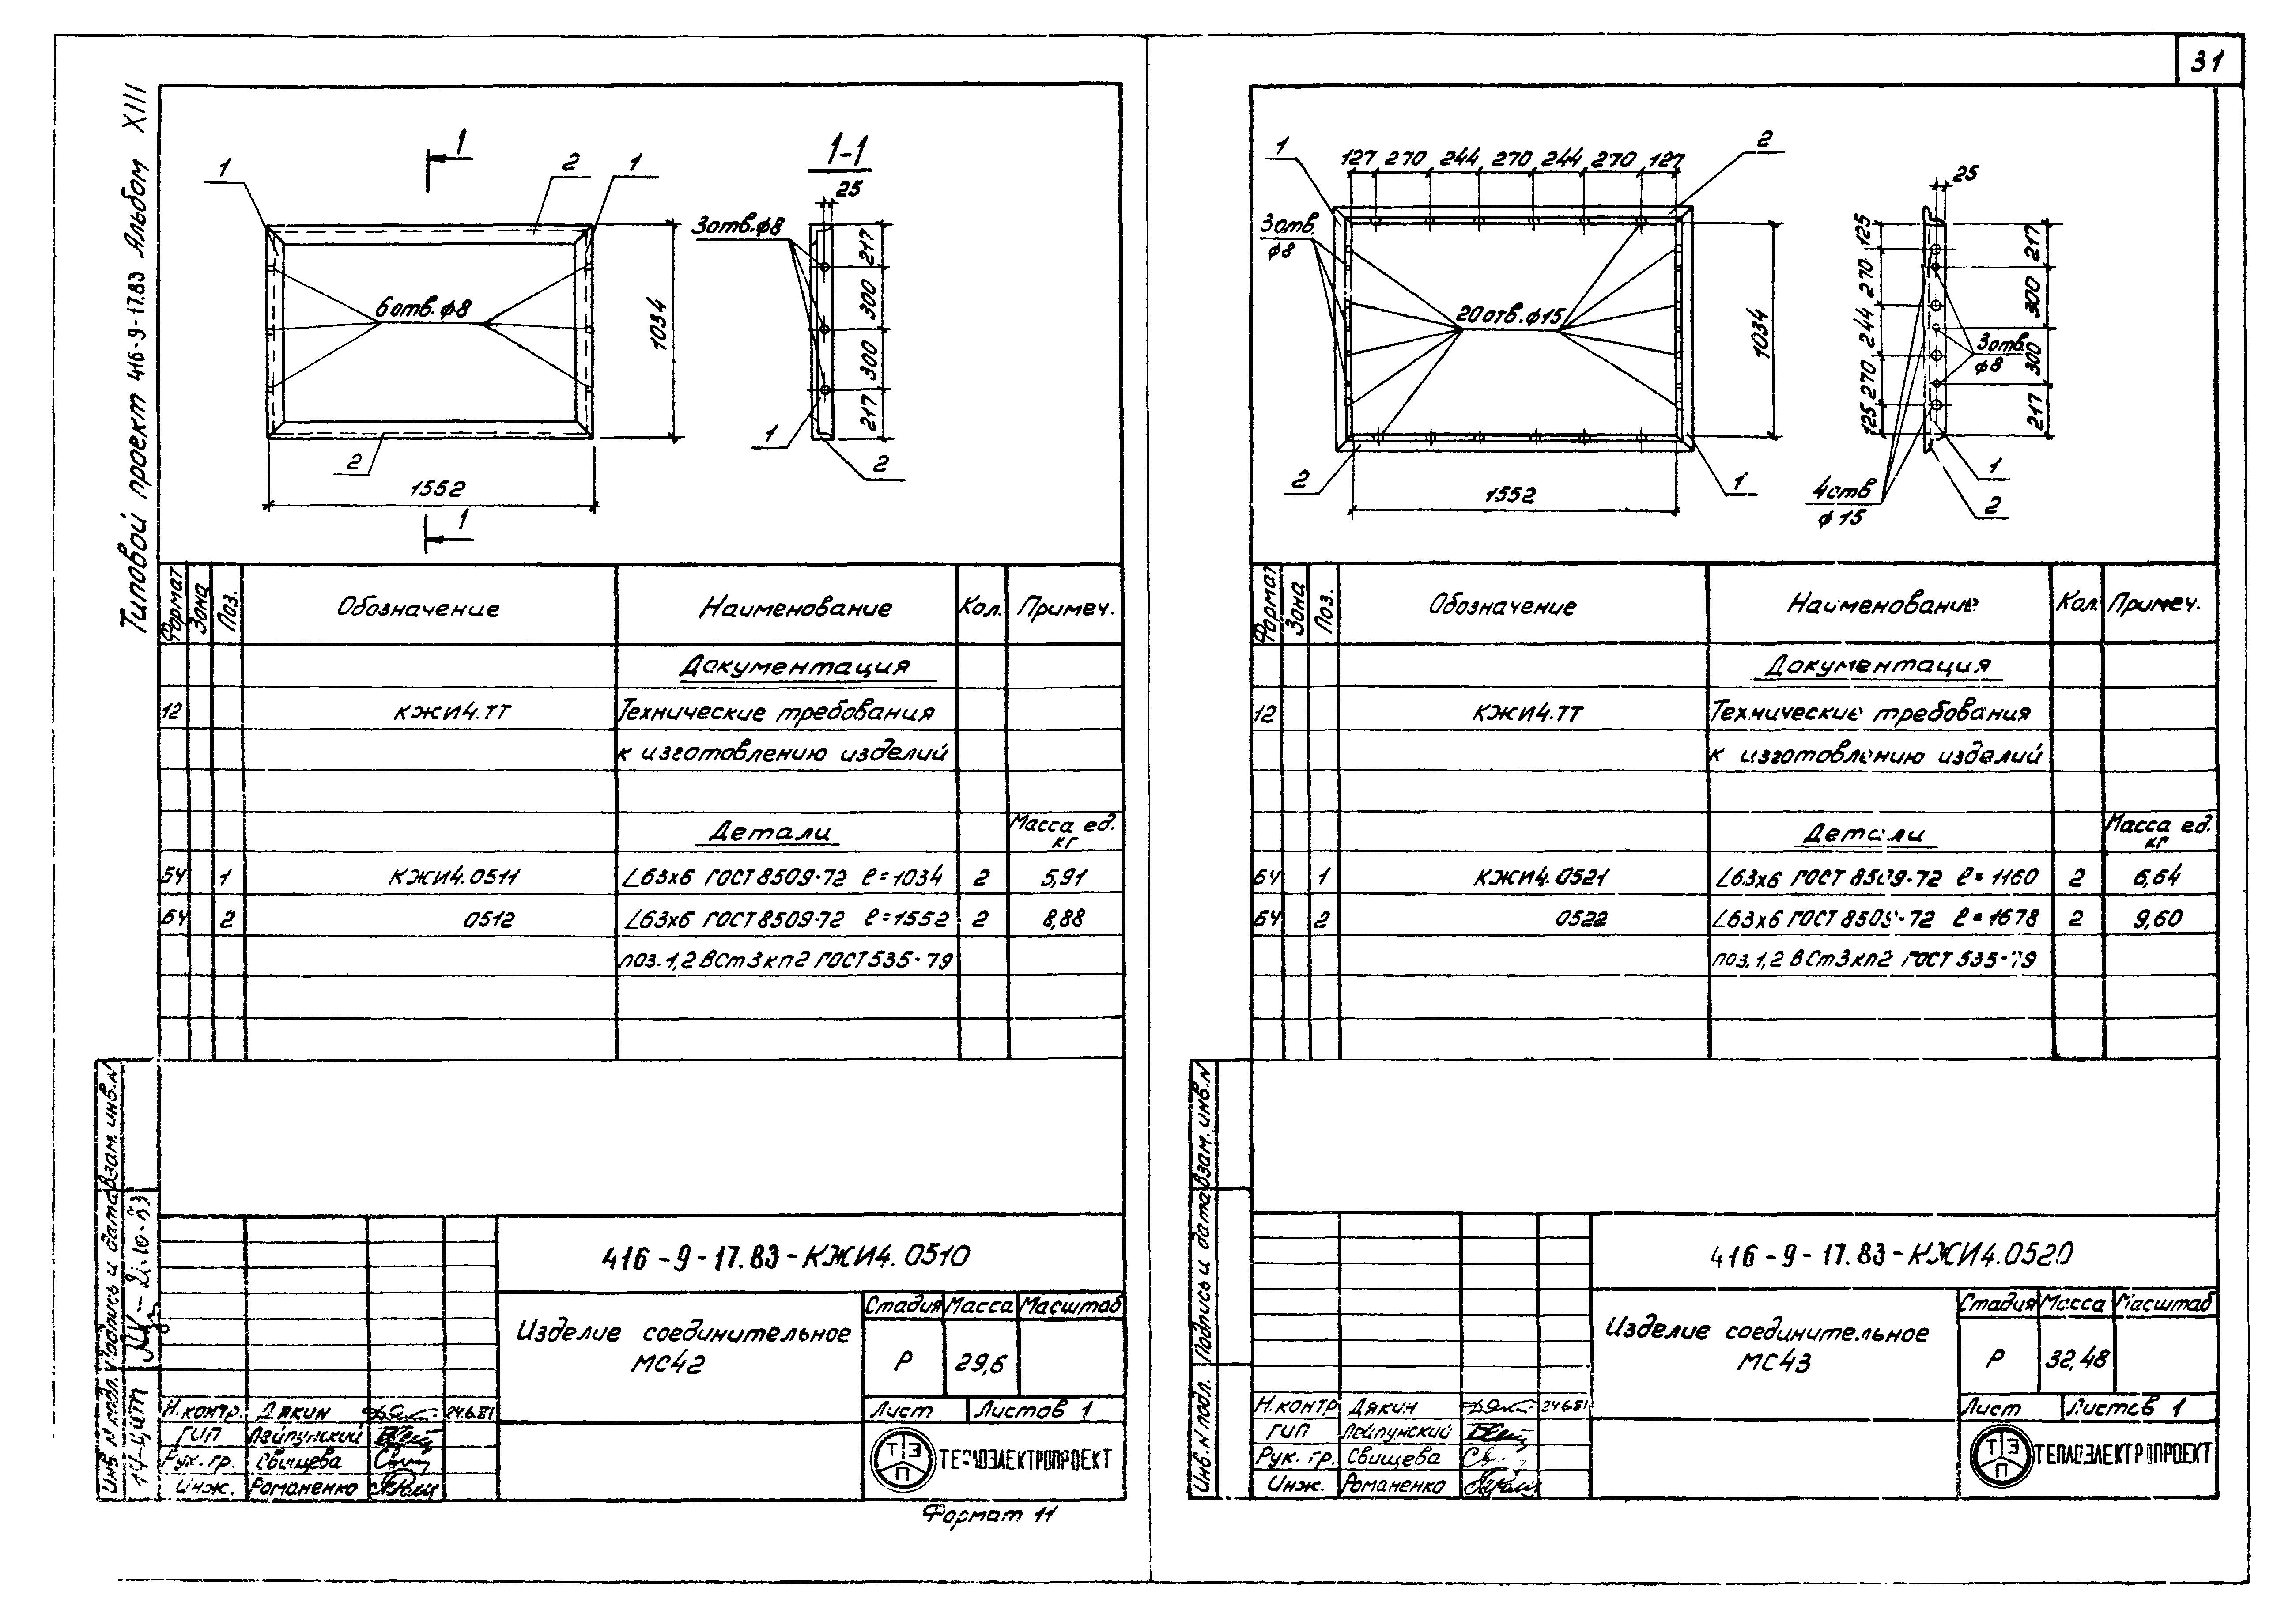 31
Типовой проект 416-9-17.83 Альбом XIII
1
1
2
1
1-1
25
3отв.ф8
6отв.ф8
1034
217
300
300
217
1
2
2
1552
1
Формат
Зона
Поз.
Обозначение
Наименование
Кол.
Примеч.
Документация
12 КЖИ4.ТТ Технические требования
к изготовлению изделий
Детали Масса ед. кг
БЧ 1 КЖИ4.0511 L63х6 ГОСТ 8509-72 ℓ=1034 2 5,91
БЧ 2 0512 L63х6 ГОСТ 8509-72 ℓ=1552 2 8,88
поз. 1,2 ВСт3кп2 ГОСТ 535-79
416-9-17.83-КЖИ4.0510
Изделие соединительное
МС42
Стадия Масса Масштаб
Р 29,6
Лист Листов 1
Н.контр. Дякин 24.6.81
ГИП Лейпунский
Рук. гр. Свищева
Инж. Романенко
ТЭП
ТЕПЛОЭЛЕКТРОПРОЕКТ
Формат 11
Взам. инв. N
Подпись и дата
Инв. N подл.
1
127 270 244 270 244 270 127
2
3отв.
ф8
20отв.ф15
1034
1552
2
1
25
125
270
244
270
125
217
300
300
217
3отв.
ф8
4отв
ф15
1
2
Формат
Зона
Поз.
Обозначение
Наименование
Кол.
Примеч.
Документация
12 КЖИ4.ТТ Технические требования
к изготовлению изделий
Детали Масса ед. кг
БЧ 1 КЖИ4.0521 L63х6 ГОСТ 8509-72 ℓ=1160 2 6,64
БЧ 2 0522 L63х6 ГОСТ 8509-72 ℓ=1678 2 9,60
поз. 1,2 ВСт3кп2 ГОСТ 535-79
416-9-17.83-КЖИ4.0520
Изделие соединительное
МС43
Стадия Масса Масштаб
Р 32,48
Лист Листов 1
Н.контр Дякин 24.6.81
ГИП Лейпунский
Рук. гр. Свищева
Инж. Романенко
ТЭП
ТЕПЛОЭЛЕКТРОПРОЕКТ
Взам. инв. N
Подпись и дата
Инв. N подл.